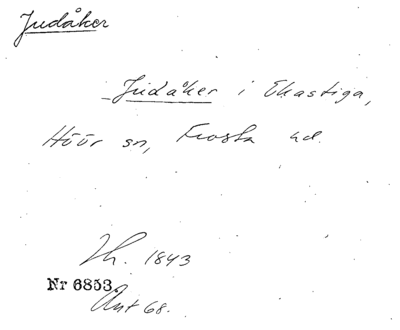 Judåker
Judåker i Ekastiga,
Höör sn, Frosta hd.
Th. 1843
Nr 6853
Ant 68.